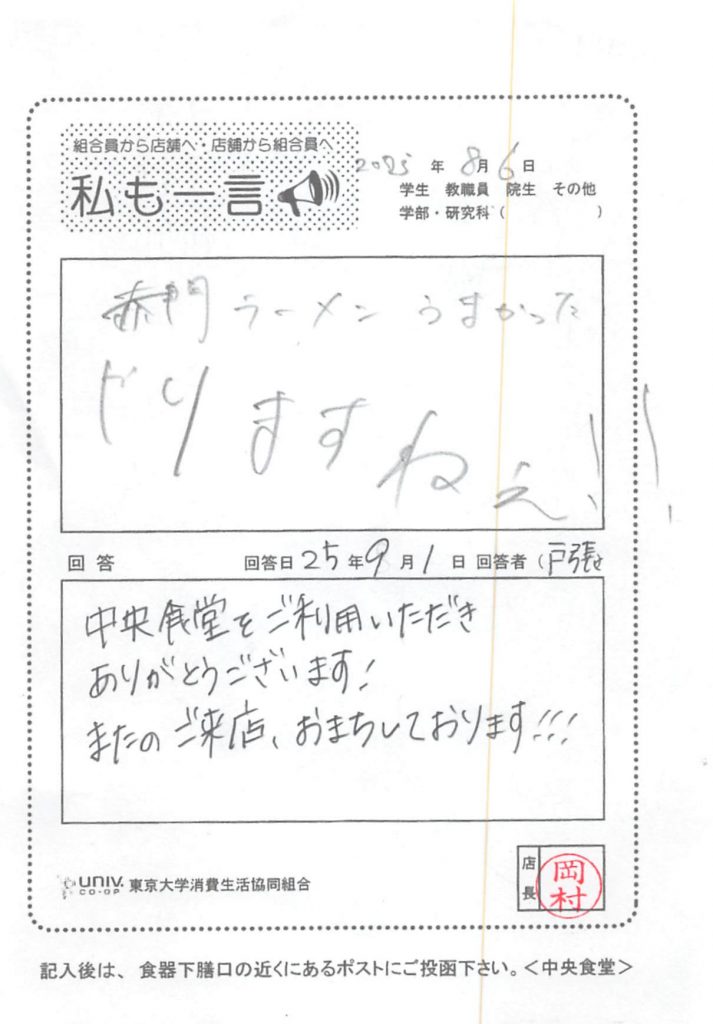 組合員から店舗へ・店舗から組合員へ
私も一言
2025 年 8月 6日
学生 教職員 院生 その他
学部・研究科 ( )
赤門ラーメン うまかった
りますねぇ!!
回答 回答日 25年9月1日 回答者 (戸張
中央食堂をご利用いただき
ありがとうございます!
またのご来店、おまちしております!!!
UNIV. CO-OP 東京大学消費生活協同組合
店長 岡村
記入後は、食器下膳口の近くにあるポストにご投函下さい。＜中央食堂＞